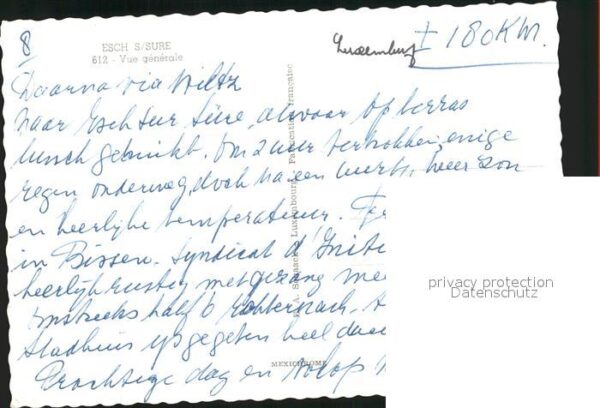 8
ESCH S/SURE
612 - Vue générale
Luxemburg
± 180 KM.
Daarna via Wiltz
naar Esch sur Sûre, alwaar op terras
lunch gebruikt. Om 2 uur vertrokken, enige
regen onderweg, doch na een
en heerlijke temperatuur.
in Bissen. Syndicat d'
heerlijk rustig met gezang
Omstreeks half 6 Echternach.
Stadhuis ijs gegeten heel
Prachtige dag en
MEXICHROME
privacy protection
Datenschutz